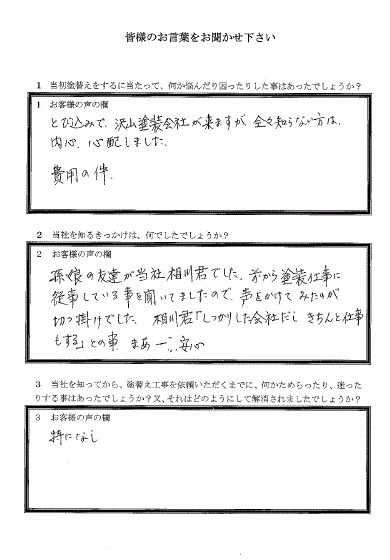 皆様のお言葉をお聞かせ下さい
1 当初塗替えをするに当たって、何か悩んだり困ったりした事はあったでしょうか？
1 お客様の声の欄
とび込みで、沢山塗装会社が来ますが、全々知らない方は、
内心、心配しました。
費用の件.
2 当社を知るきっかけは、何でしたでしょうか？
2 お客様の声の欄
孫娘の友達が当社、相川君でした。前から塗装仕事に
従事している事を聞いてましたので、声をかけてみたのが
切っ掛けでした。 相川君「しっかりした会社だし きちんと仕事
もする」との事 まあ一 安心
3 当社を知ってから、塗替え工事を依頼いただくまでに、何かためらったり、迷った
りする事はあったでしょうか？又、それはどのようにして解消されましたでしょうか？
3 お客様の声の欄
特になし